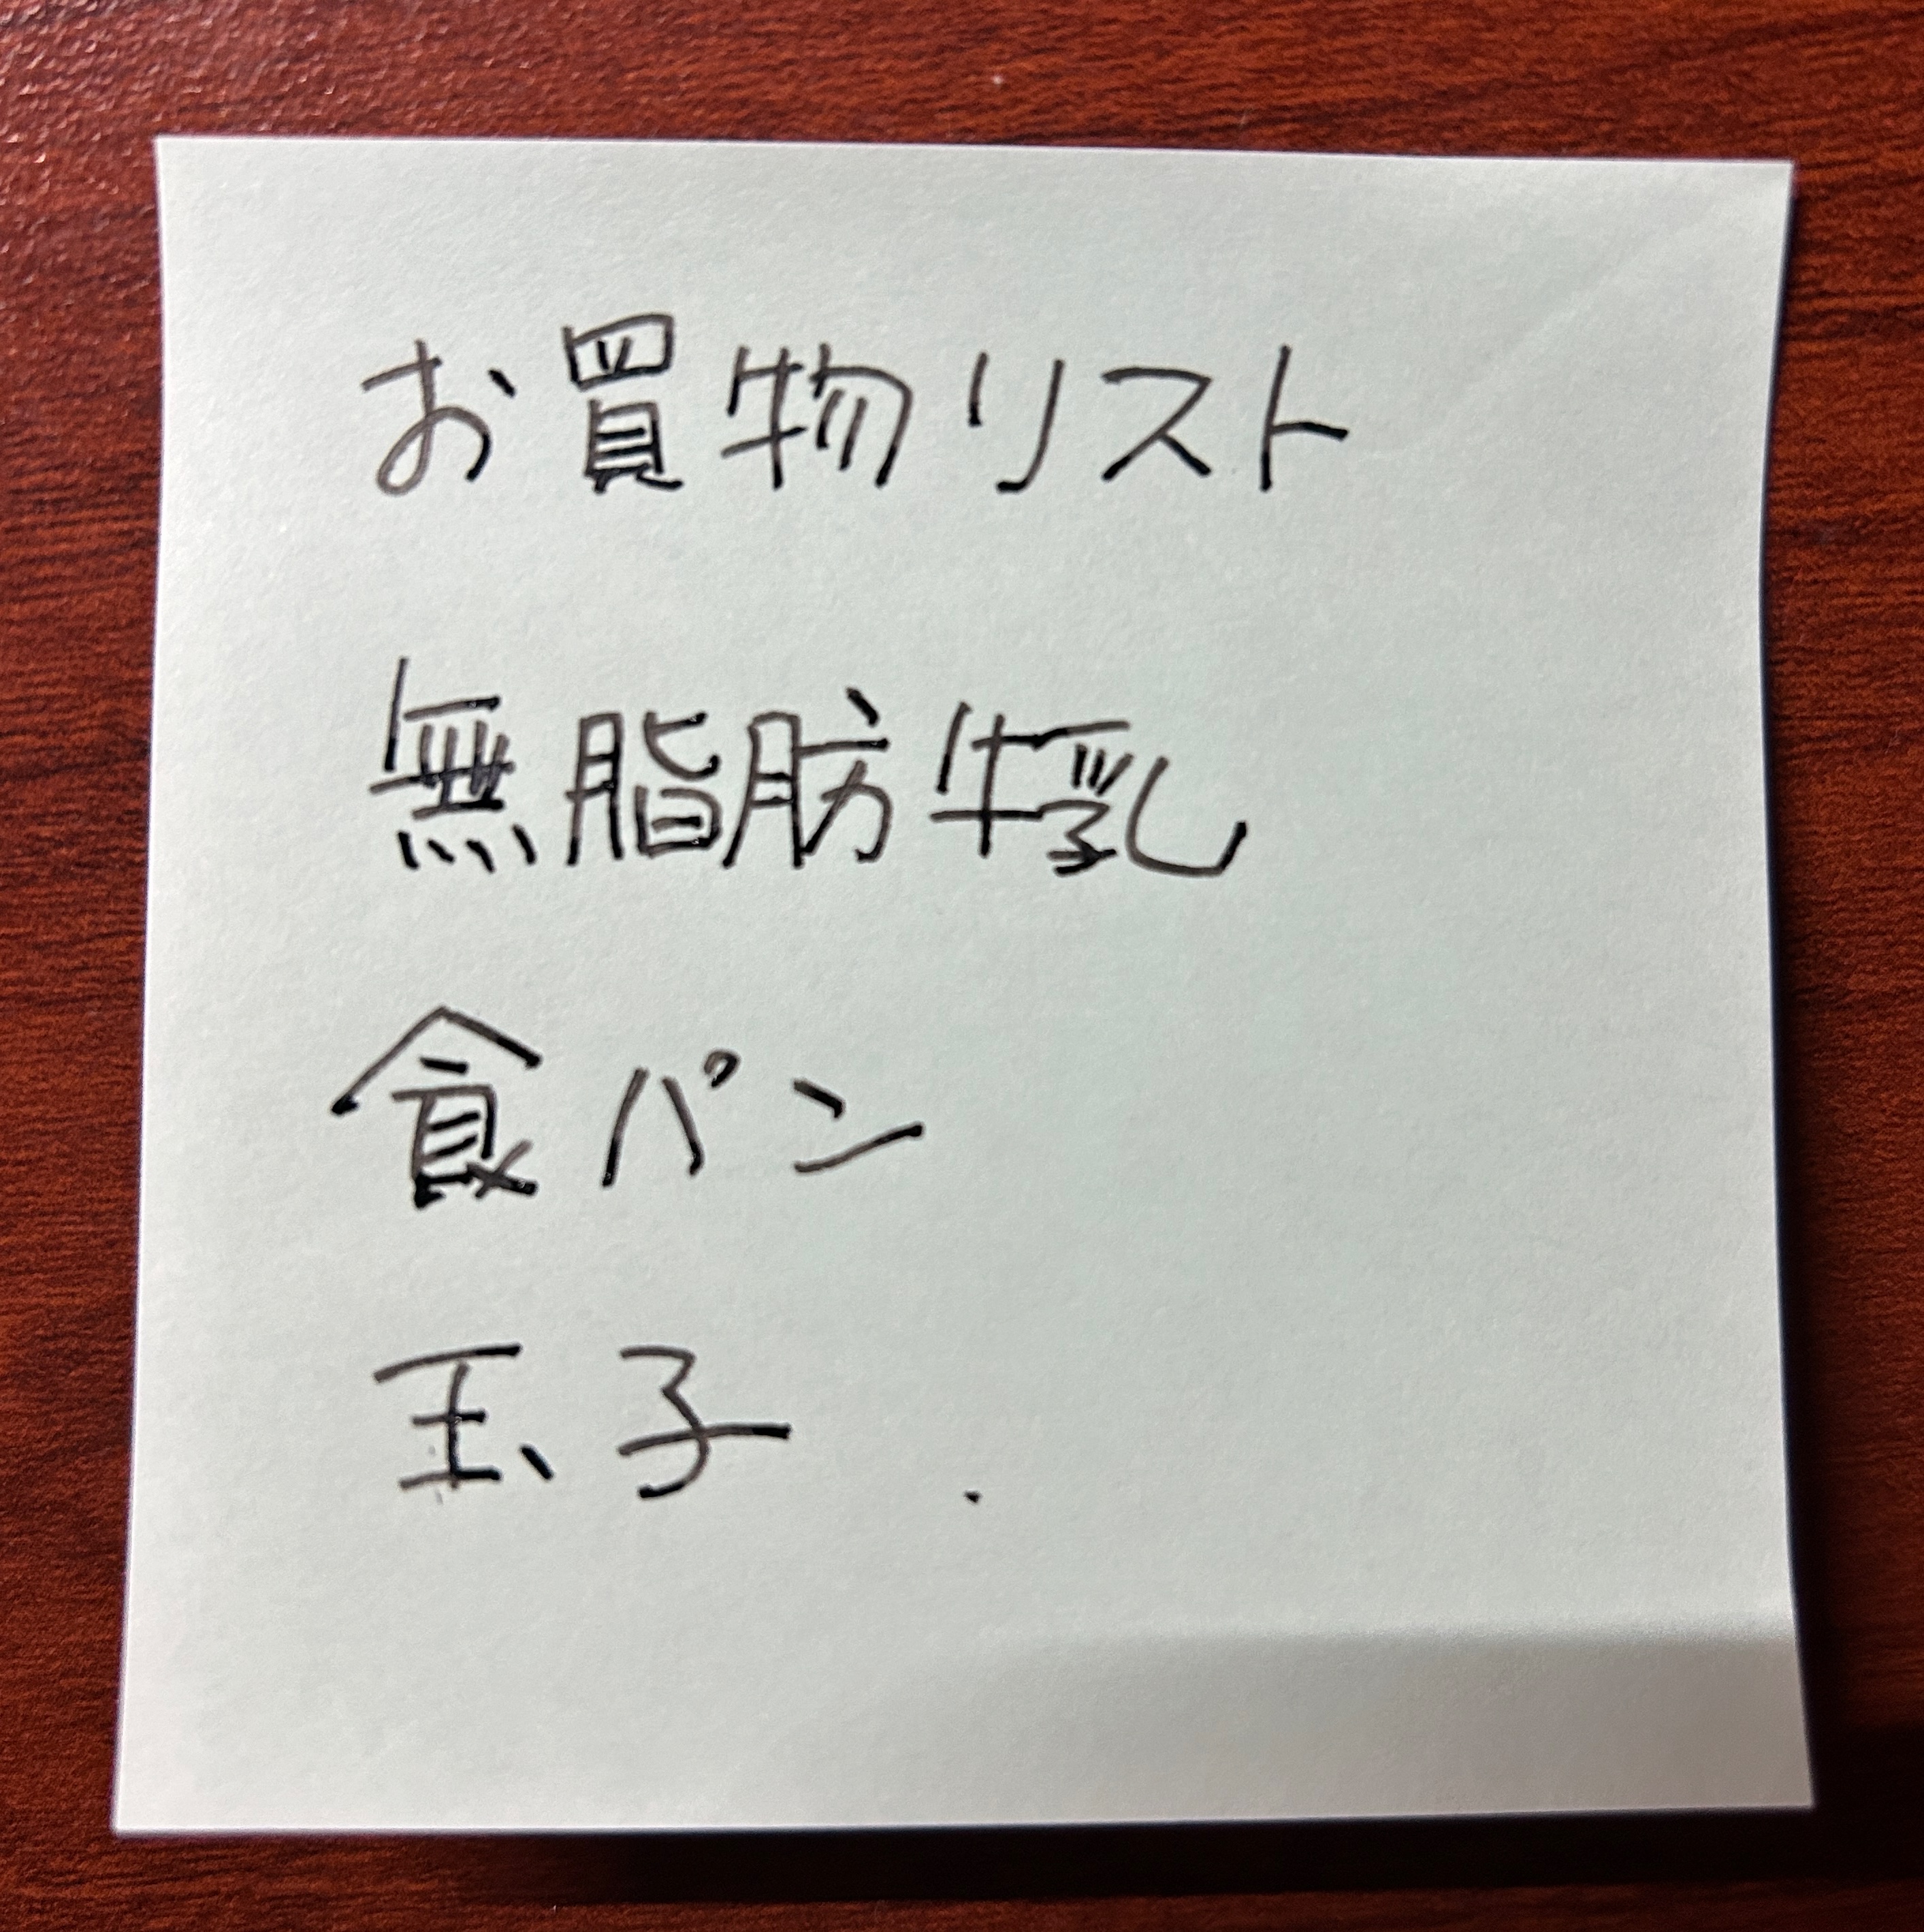 お買物リスト
無脂肪牛乳
食パン
玉子